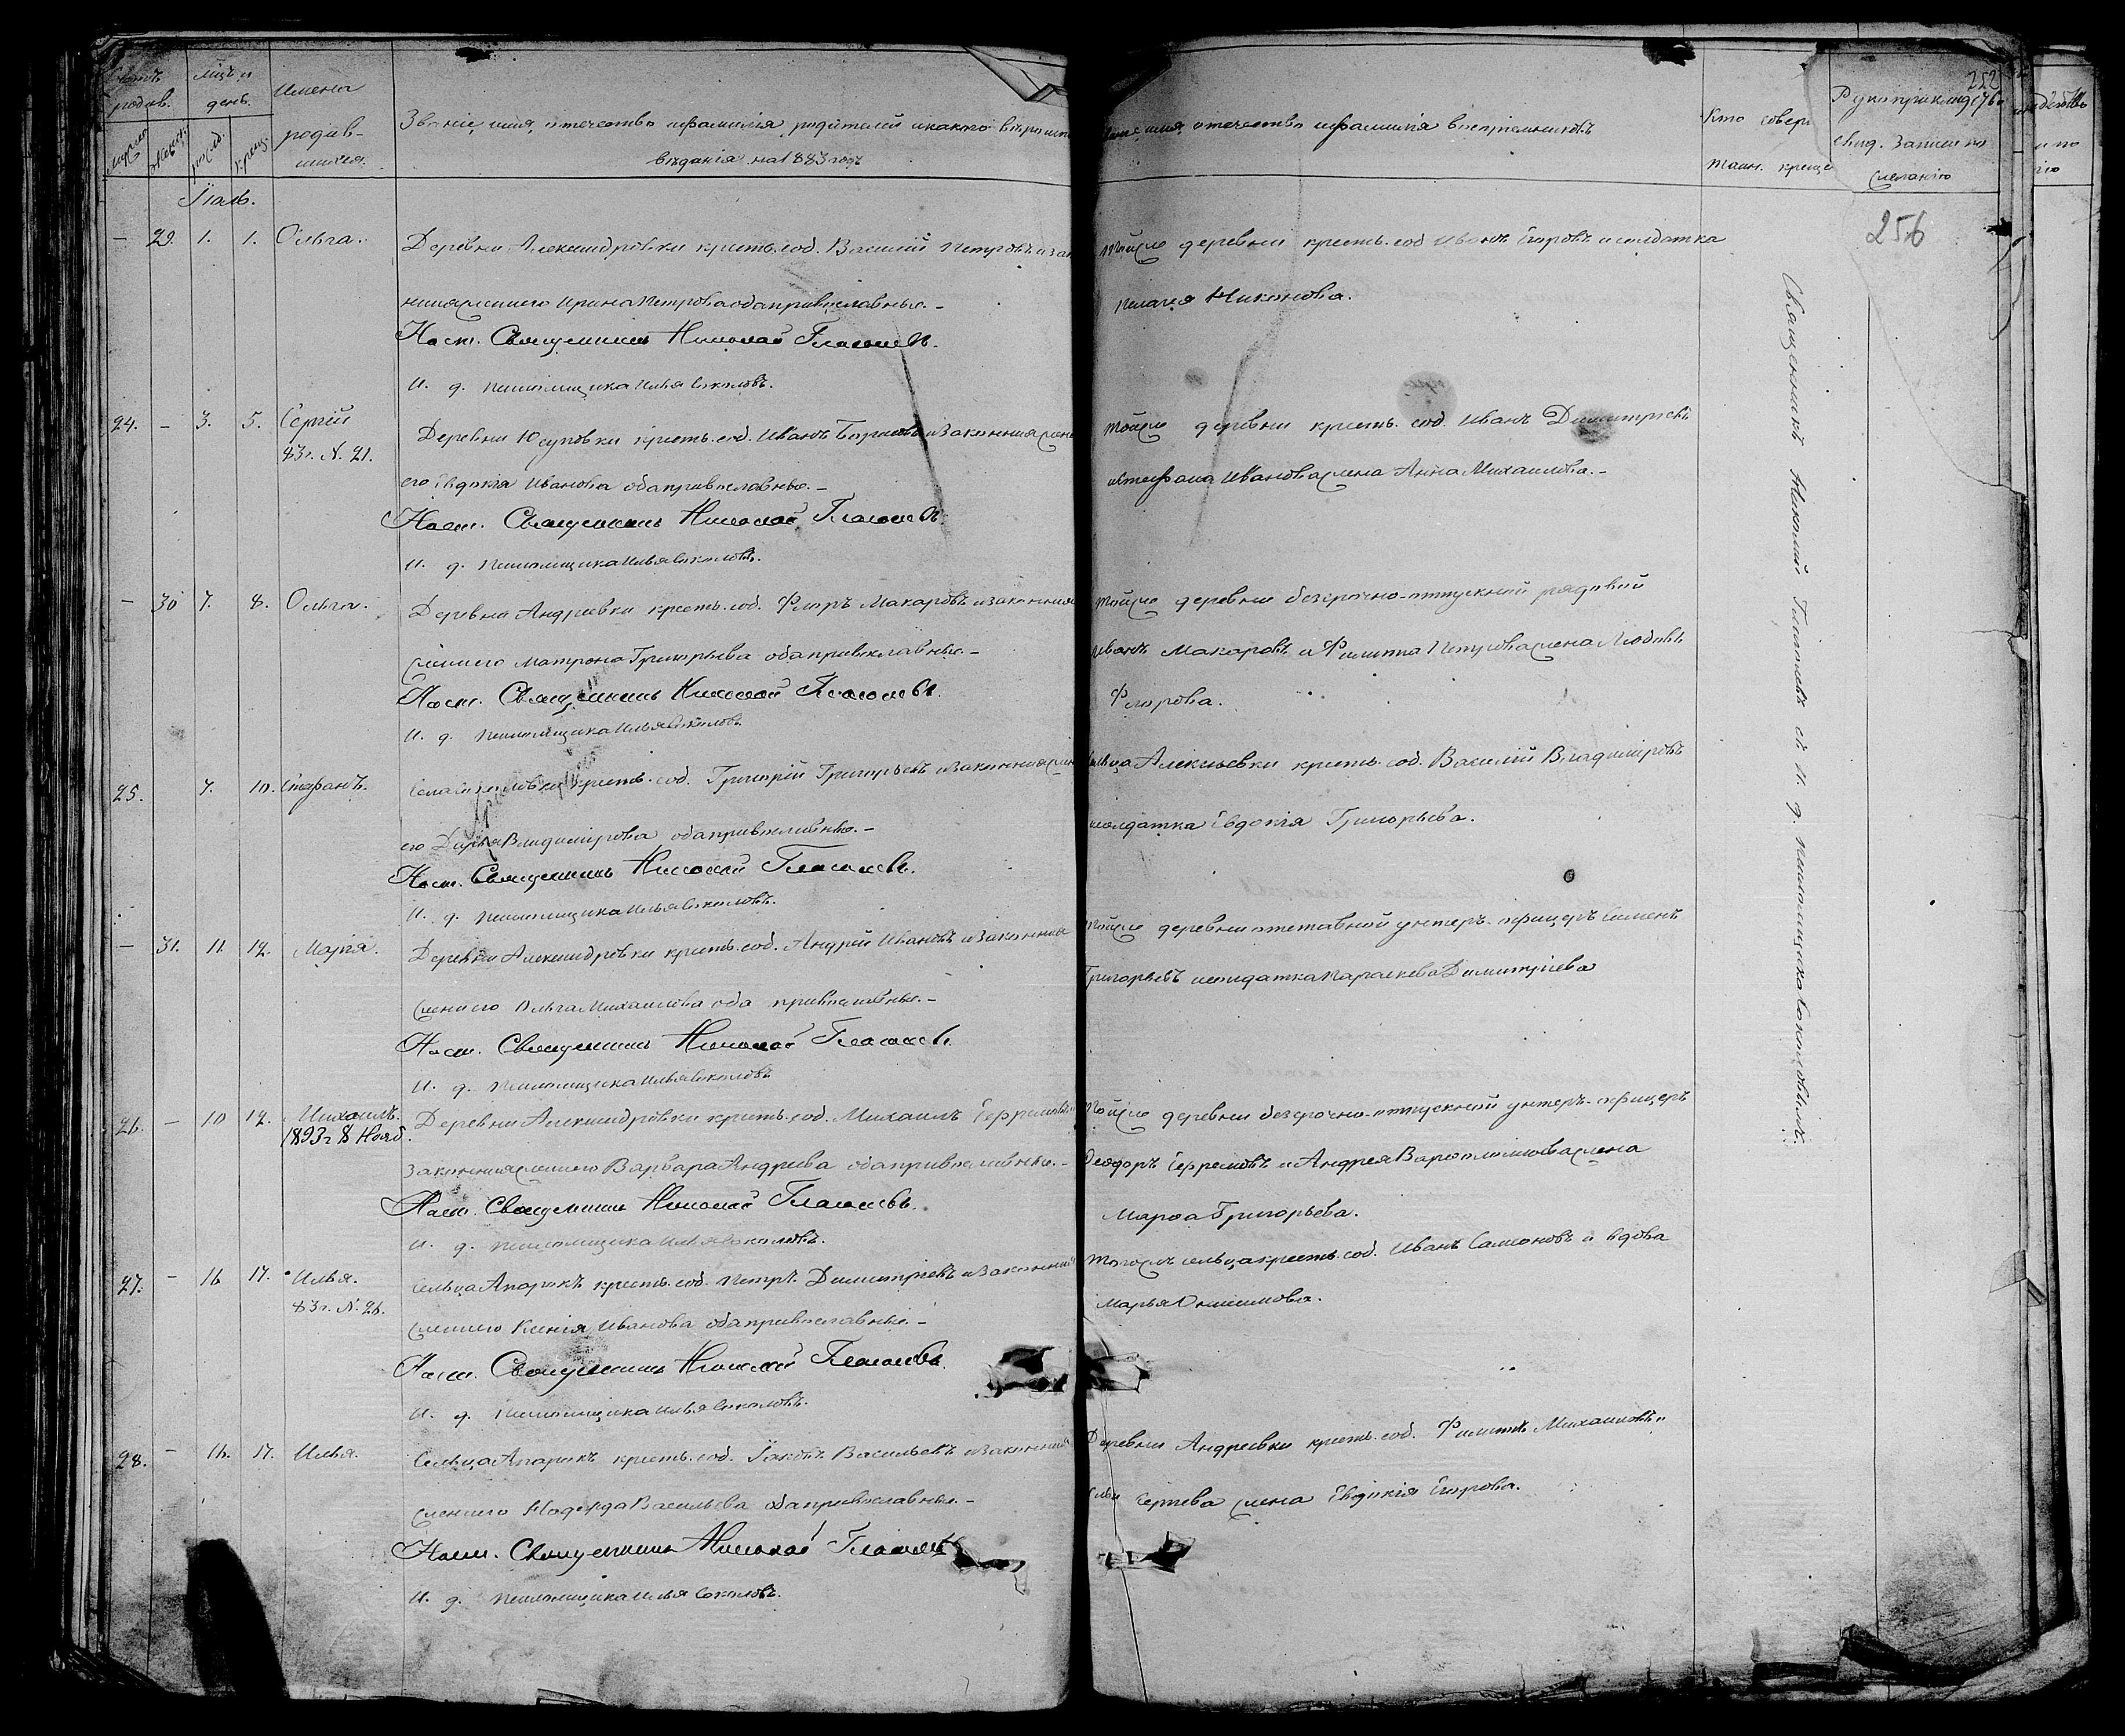 Счетъ
родив.
мѣсяцъ и
день.
Имена
родив-
шихся.
Званіе, имя, отечество и фамилія родителей и какого вѣроиспо
вѣданія на 1883 годъ
имя, отечество и фамилія воспріемниковъ
Кто соверш.
таин. крещен
252
Рукоприкладство
свид. записи по
желанію
256
Іюль.
— 29. 1. 1. Ольга.
Деревни Александровки крестьян. соб. Василій Петровъ и зак
ная жена его Ирина Петрова оба православные. –
Наст. Священникъ Николай Глаголевъ.
И. д. псаломщика Илья Соколовъ.
Той же деревни крестьян. соб. Иванъ Егоровъ и солдатка
Пелагея Никонова.
24. – 3. 5. Сергій
83 г. N. 21.
Деревни Юсуповки крестьян. соб. Иванъ Борисовъ и законная жена
его Евдокія Иванова оба православные. –
Наст. Священникъ Николай Глаголевъ.
И. д. псаломщика Илья Соколовъ.
Той же деревни крестьян. соб. Иванъ Димитріевъ
и Стефана Иванова жена Анна Михайлова. –
– 30 7. 8. Ольга.
Деревни Андреевки крестьян. соб. Флоръ Макаровъ и законная
жена его Матрона Григорьева оба православные. –
Наст. Священникъ Николай Глаголевъ.
И. д. псаломщика Илья Соколовъ.
Той же деревни безсрочно-отпускной рядовой
Иванъ Макаровъ и Филиппа Петрова жена Любовь
Флорова.
25. 7. 10. Стефанъ.
Села крестьян. соб. Григорій Григорьевъ и законная жена
его Дарья Владимірова оба православные. –
Наст. Священникъ Николай Глаголевъ.
И. д. псаломщика Илья Соколовъ.
сельца Алексѣевки крестьян. соб. Василій Владиміровъ
и солдатка Евдокія Григорьева.
– 31. 11. 12. Марія.
Деревни Александровки крестьян. соб. Андрей Ивановъ и законная
жена его Ольга Михайлова оба православные. –
Наст. Священникъ Николай Глаголевъ.
И. д. псаломщика Илья Соколовъ
Той же деревни отставной унтеръ-офицеръ Семенъ
Григорьевъ и солдатка Параскева Димитріева
26. – 10 12. Михаилъ.
1893 г 8 Нояб.
Деревни Александровки крестьян. соб. Михаилъ Ефремовъ и
законная жена его Варвара Андреева оба православные. –
Наст. Священникъ Николай Глаголевъ.
И. д. псаломщика Илья Соколовъ.
Той же деревни безсрочно-отпускной унтеръ-офицеръ
Ѳеодоръ Ефремовъ и Андрея Варѳоломѣева жена
Марѳа Григорьева.
27. – 16 17. Илья.
83 г. N. 26.
Сельца Апарокъ крестьян. соб. Петръ Димитріевъ и законная
жена его Ксенія Иванова оба православные. –
Наст. Священникъ Николай Глаголевъ.
И. д. псаломщика Илья Соколовъ.
Того же сельца крестьян. соб. Иванъ Самсоновъ и вдова
Марья Онисимова.
28. – 16. 17. Илья.
Сельца Апарокъ крестьян. соб. Іаковъ Васильевъ и законная
жена его Надежда Васильева оба православные. –
Наст. Священникъ Николай Глаголевъ
И. д. псаломщика Илья Соколовъ.
Деревни Андреевки крестьян. соб. Филиппъ Михаиловъ и
Ильи Сергѣева жена Евдокія Егорова.
Священникъ Николай Глаголевъ съ и. д. псаломщика Соколовымъ.